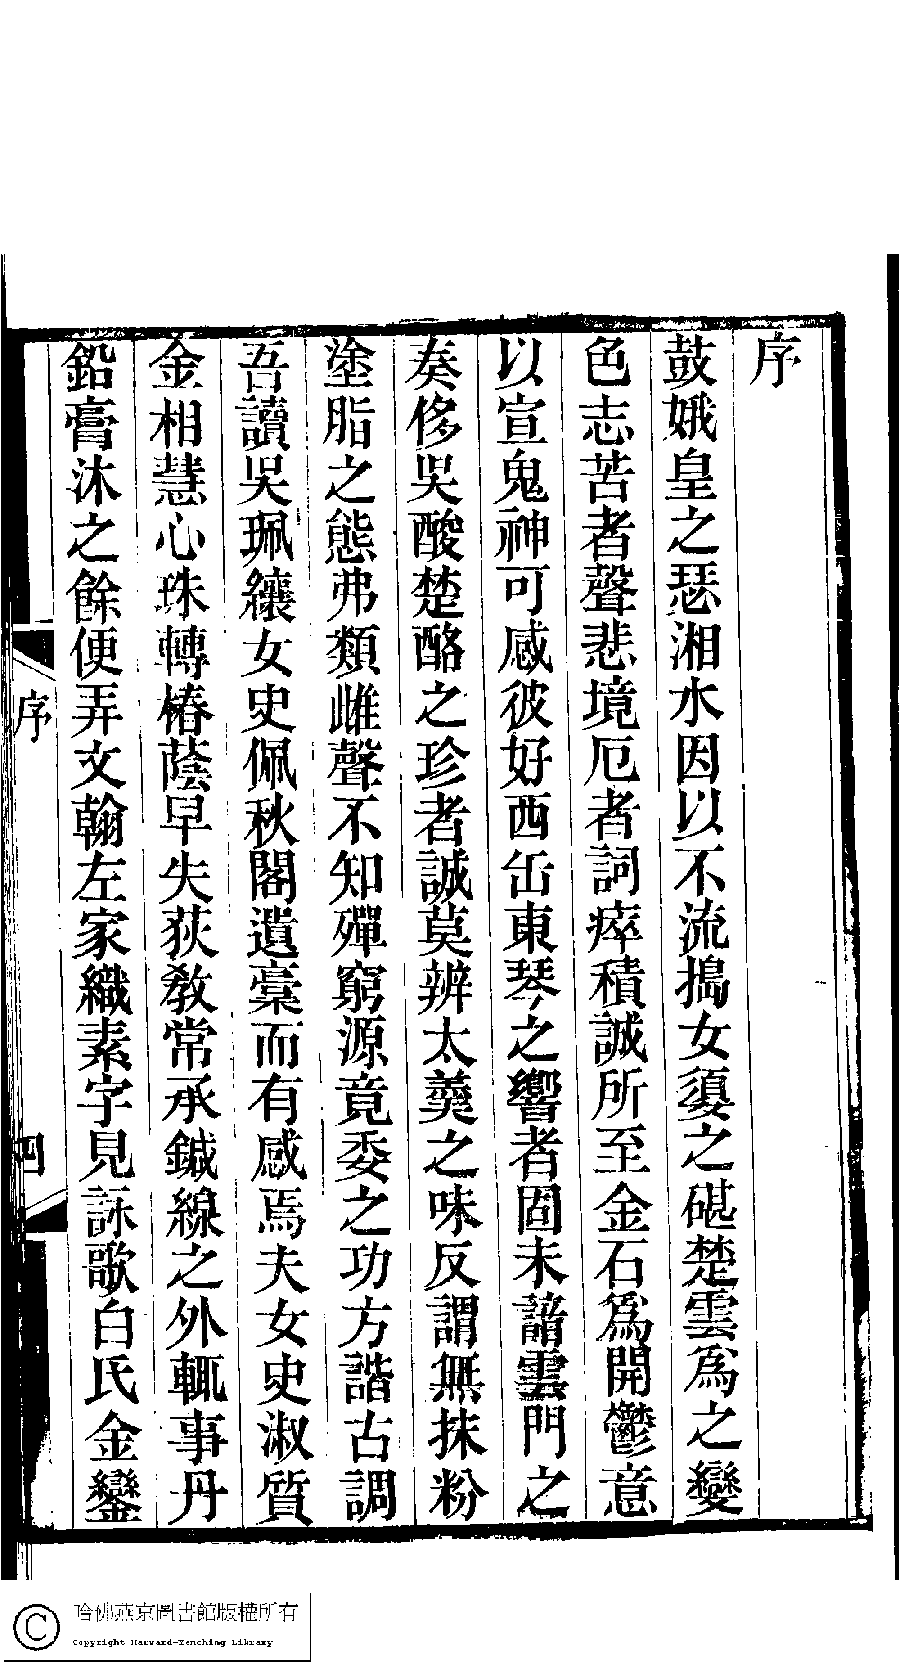 序
鼓娥皇之瑟湘水因以不流搗女嬃之碪楚雲爲之變
色志苦者聲悲境厄者詞瘁積誠所至金石爲開鬱意
以宣鬼神可感彼好西缶東琴之響者固未諳雲門之
奏侈吳酸楚酪之珍者誠莫辨太羹之味反謂無抹粉
塗脂之態弗類雌聲不知殫窮源竟委之功方諧古調
吾讀吳珮纕女史佩秋閣遺稾而有感焉夫女史淑質
金相慧心珠轉椿蔭早失荻教常承鍼線之外輒事丹
鉛膏沐之餘便弄文翰左家織素字見詠歌白氏金鑾
序
四
哈佛燕京圖書館版權所有
Copyright Harvard-Yenching Library